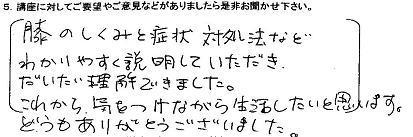 5. 講座に対してご要望やご意見などがありましたら是非お聞かせ下さい。
膝のしくみと症状 対処法など
わかりやすく説明していただき
だいたい理解できました。
これから、気をつけながら生活したいと思います。
どうもありがとうございました。